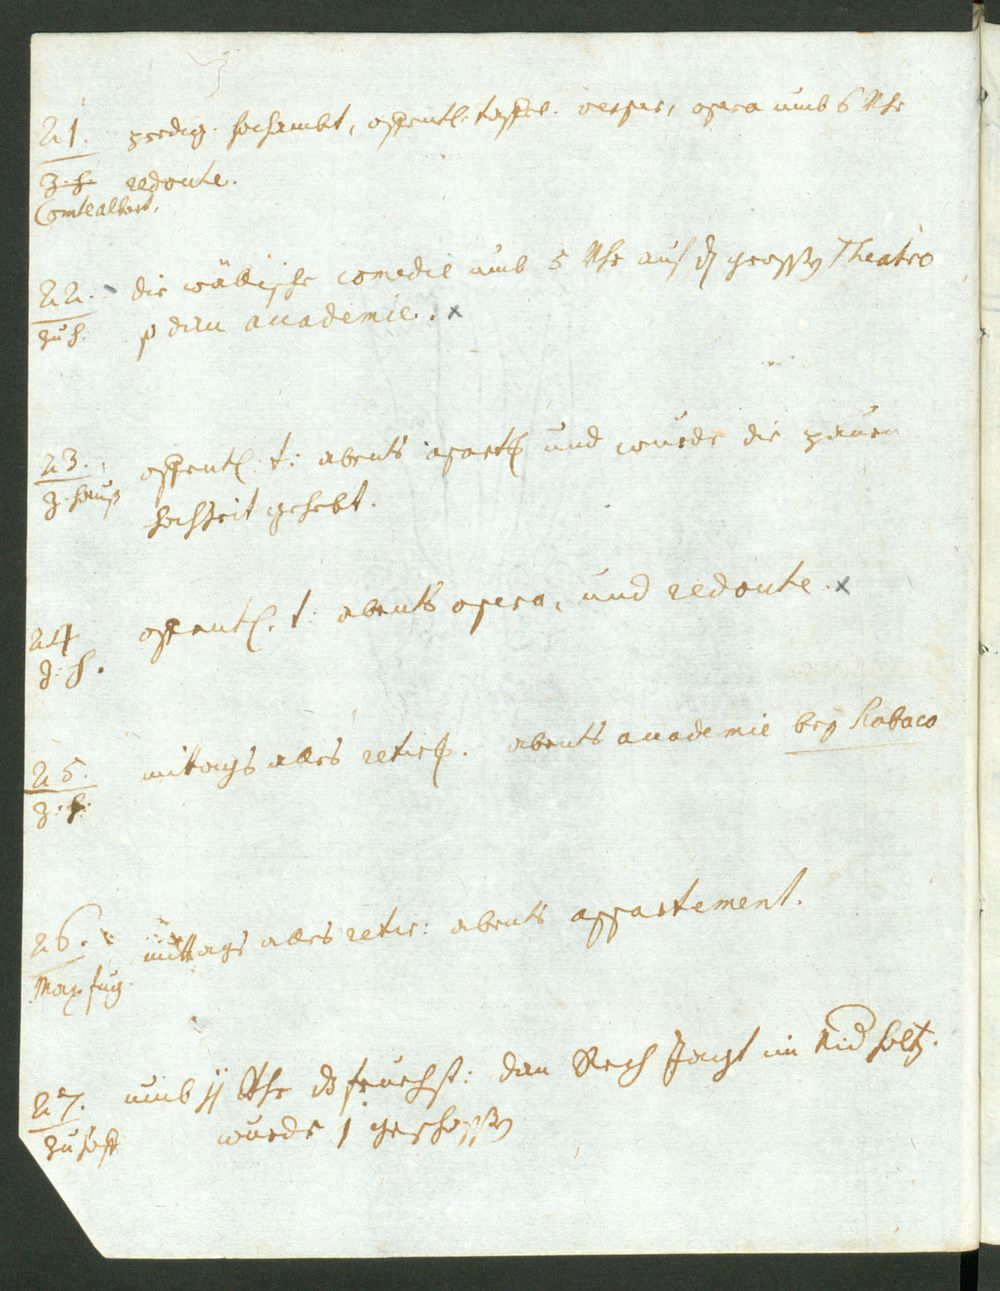 21. predig. hochambt, offentl: taffel. vesper, opera umb 6 Uhr
z. h. redoute.
Comte albert.
22. die wällische comedie umb 5 Uhr auf dem grossen Theatro
zu h. dan accademie.
23. offentl: t: abents apart und wurde die pauren
z. hauß hochzeit gehebt.
24 offentl. t: abents opera, und redoute.
z: h.
25. mittags alles retir. abents accademie bey
z: h:
26. mittags alles retir: abents appartement.
Max
27. umb 11 Uhr dan Rech Jagt im holtz.
zu hoff wurde 1 geschossen